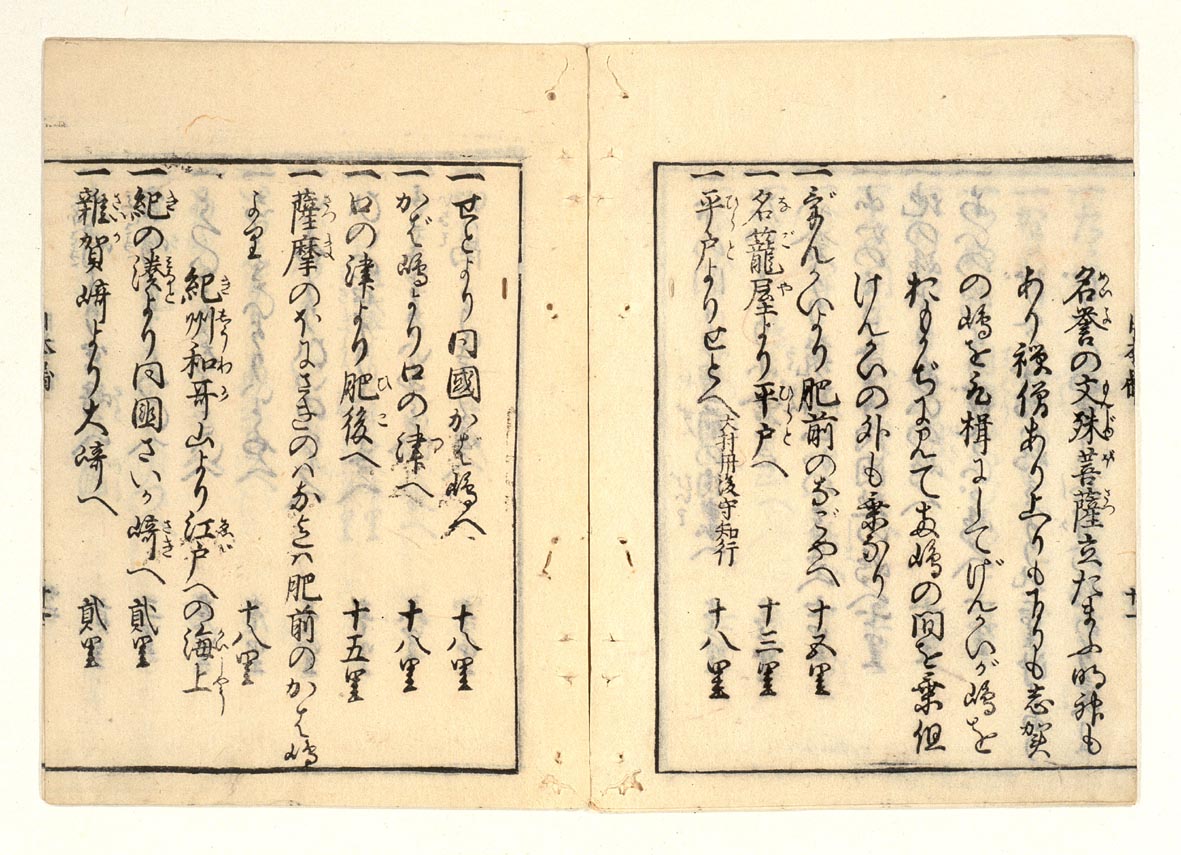 名誉の文殊菩薩立たまふ明神も
あり禅僧あり上りも下りも志賀
の嶋を取楫にしてげんかいが嶋を
おもかぢに見て両嶋の間を乗但
けんかいの外も乗なり
一げんかいより肥前のなごやへ 十五里
一名護屋より平戸へ 十三里
一平戸よりせとへ 大村丹後守知行 十八里
一せとより同國かば嶋へ 十八里
一かば嶋より口の津へ 十八里
一口の津より肥後へ 十五里
一薩摩の
肥前のかば嶋
より 十八里
紀州和哥山より江戸への海上
一紀の湊より同國さいか崎へ 貮里
一雜賀崎より大崎へ 貮里